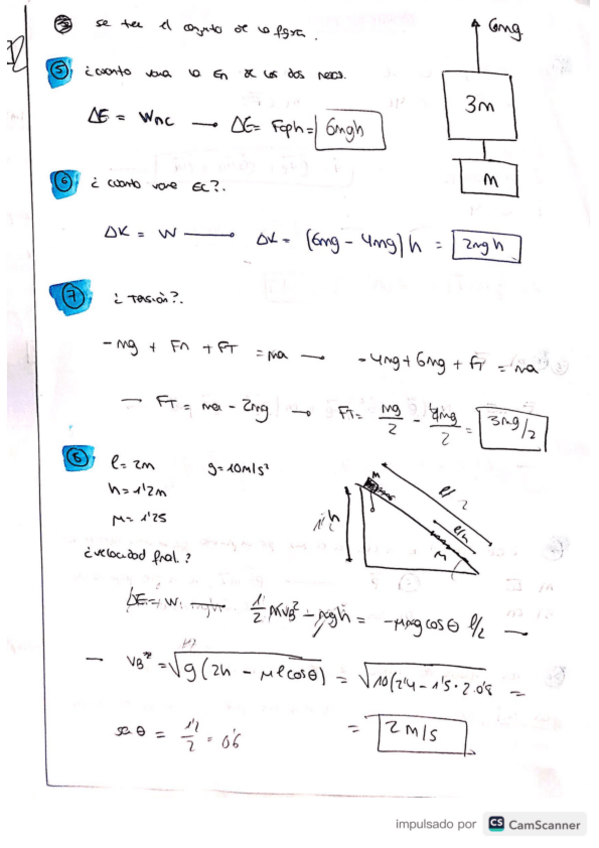 se tee el conjunto de la figura.
6mg
⑤ ¿cuanto vara la En de los dos
3m
ΔE = Wnc → ΔE = Foph = 6mgh
m
⑥ ¿cuanto vare EC?.
ΔK = W → ΔK = (6mg - 4mg) h = 2mgh
⑦ ¿tensión?.
-mg + Fn + FT = ma → -4mg + 6mg + FT = ma
→ FT = ma - 2mg → FT = mg/2 - 4mg/2 = 3mg/2
l = 2m g = 10m/s²
h = 1'2m
μ = 1'25
l/2
h
¿velocidad final?
ΔE = W → 1/2 MVB² - mgh = -μmg cosθ l/2 →
→ VB = √g(2h - μl cosθ) = √10(2'4 - 1'5 · 2 · 0'8 =
sen θ = = 0'6
= 2 m/s
impulsado por CS CamScanner